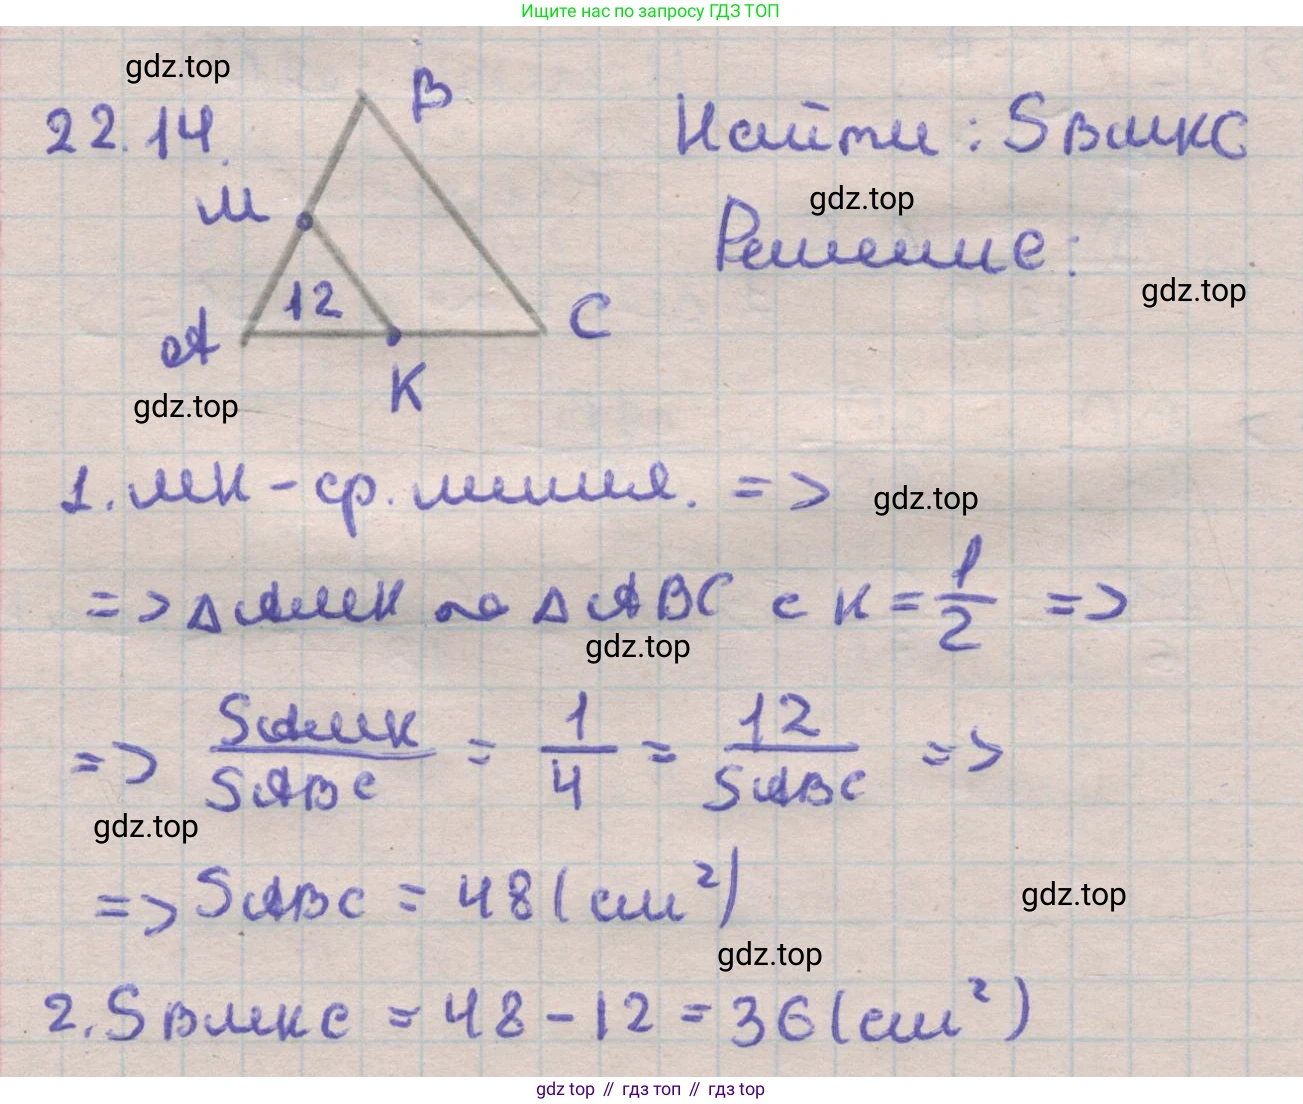 Ищите нас по запросу ГДЗ ТОП
gdz.top
22.14.
B
Найти: SBMKC
M
gdz.top
Решение:
12
gdz.top
A
C
K
gdz.top
1. MK - ср. линия. =>
gdz.top
=> ΔAMK ∾ ΔABC с K = 1/2 =>
gdz.top
=> SAMK/SABC = 1/4 = 12/SABC =>
gdz.top
=> SABC = 48 (см²)
gdz.top
gdz.top
2. SBMKC = 48 - 12 = 36 (см²)
gdz top // гдз топ // гдз top